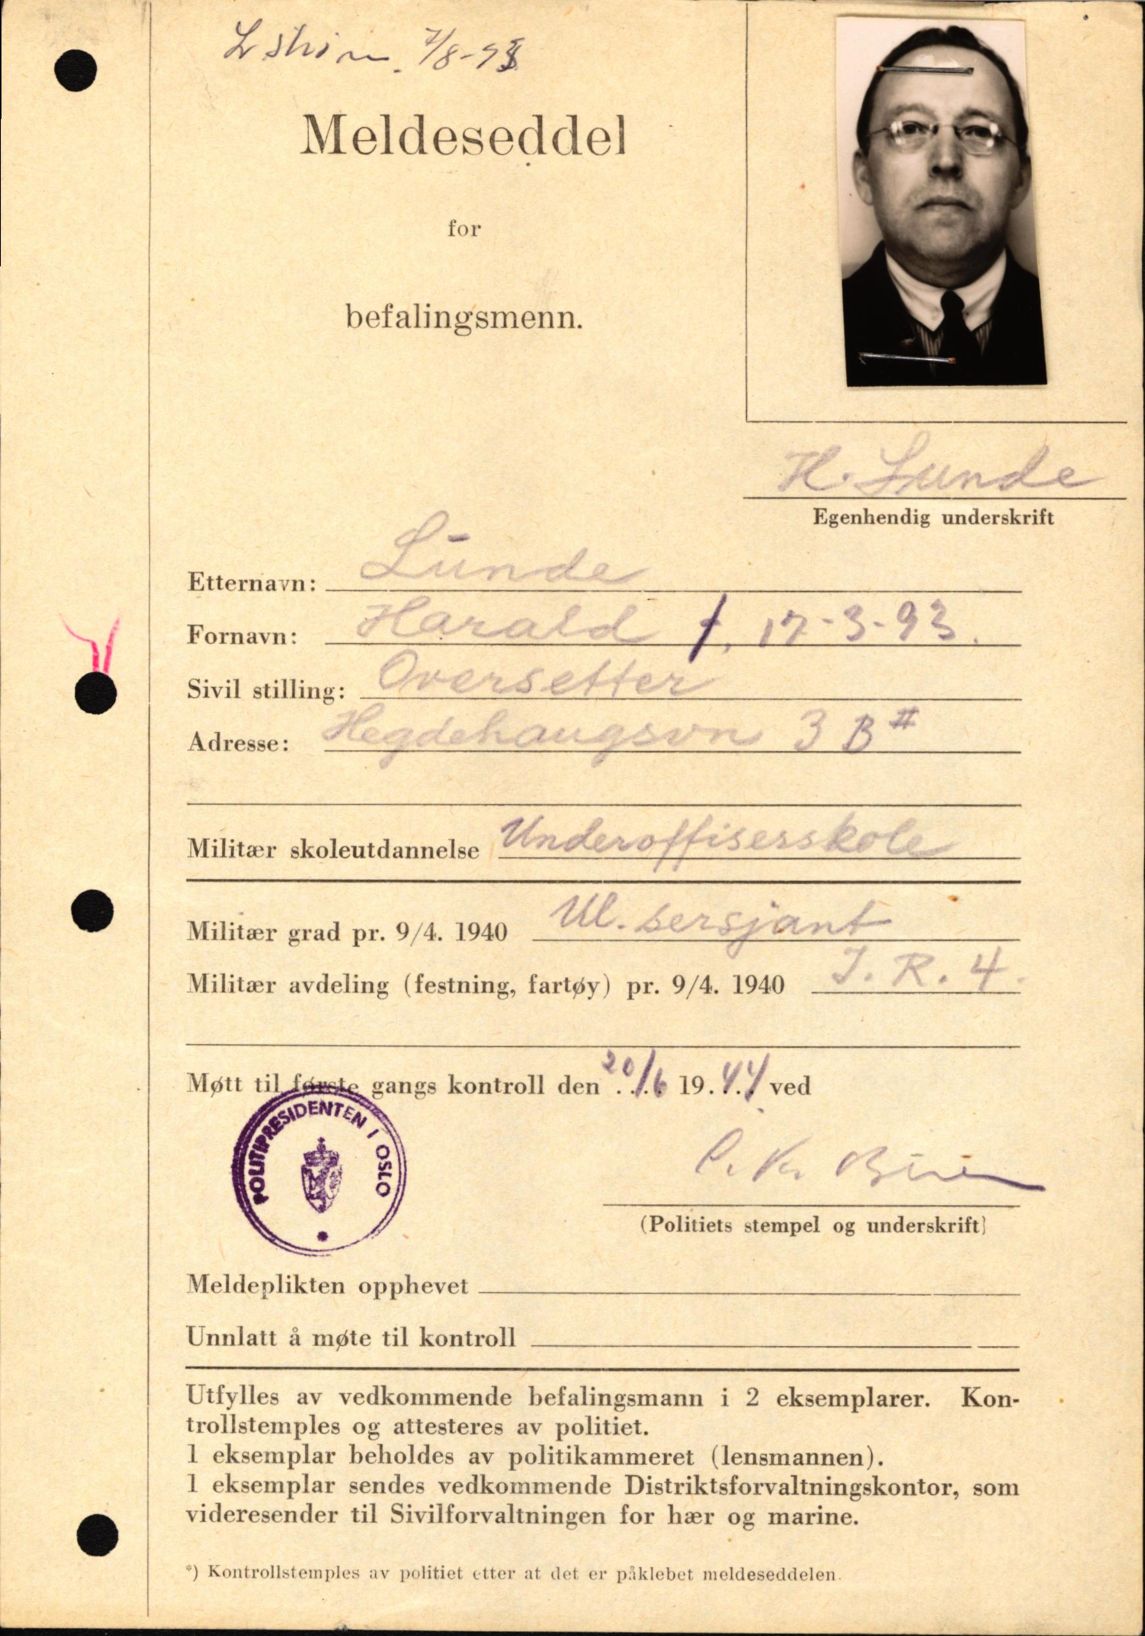 L strøm. 7/8-93
Meldeseddel
for
befalingsmenn.
H. Lunde
Egenhendig underskrift
Etternavn: Lunde
Fornavn: Harald f. 17-3-93.
Sivil stilling: Oversetter
Adresse: Hegdehaugsvn 3 B II
Militær skoleutdannelse Underoffisersskole
Militær grad pr. 9/4. 1940 Ul. sersjant
Militær avdeling (festning, fartøy) pr. 9/4. 1940 I. R. 4.
Møtt til første gangs kontroll den 20/6 1944 ved
POLITIPRESIDENTEN I OSLO
(Politiets stempel og underskrift)
Meldeplikten opphevet
Unnlatt å møte til kontroll
Utfylles av vedkommende befalingsmann i 2 eksemplarer. Kon-
trollstemples og attesteres av politiet.
1 eksemplar beholdes av politikammeret (lensmannen).
1 eksemplar sendes vedkommende Distriktsforvaltningskontor, som
videresender til Sivilforvaltningen for hær og marine.
*) Kontrollstemples av politiet etter at det er påklebet meldeseddelen.